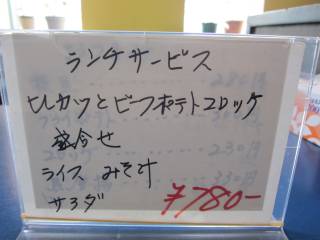 ランチサービス
ヒレカツとビーフポテトコロッケ
盛合せ
ライス みそ汁
サラダ
¥780-